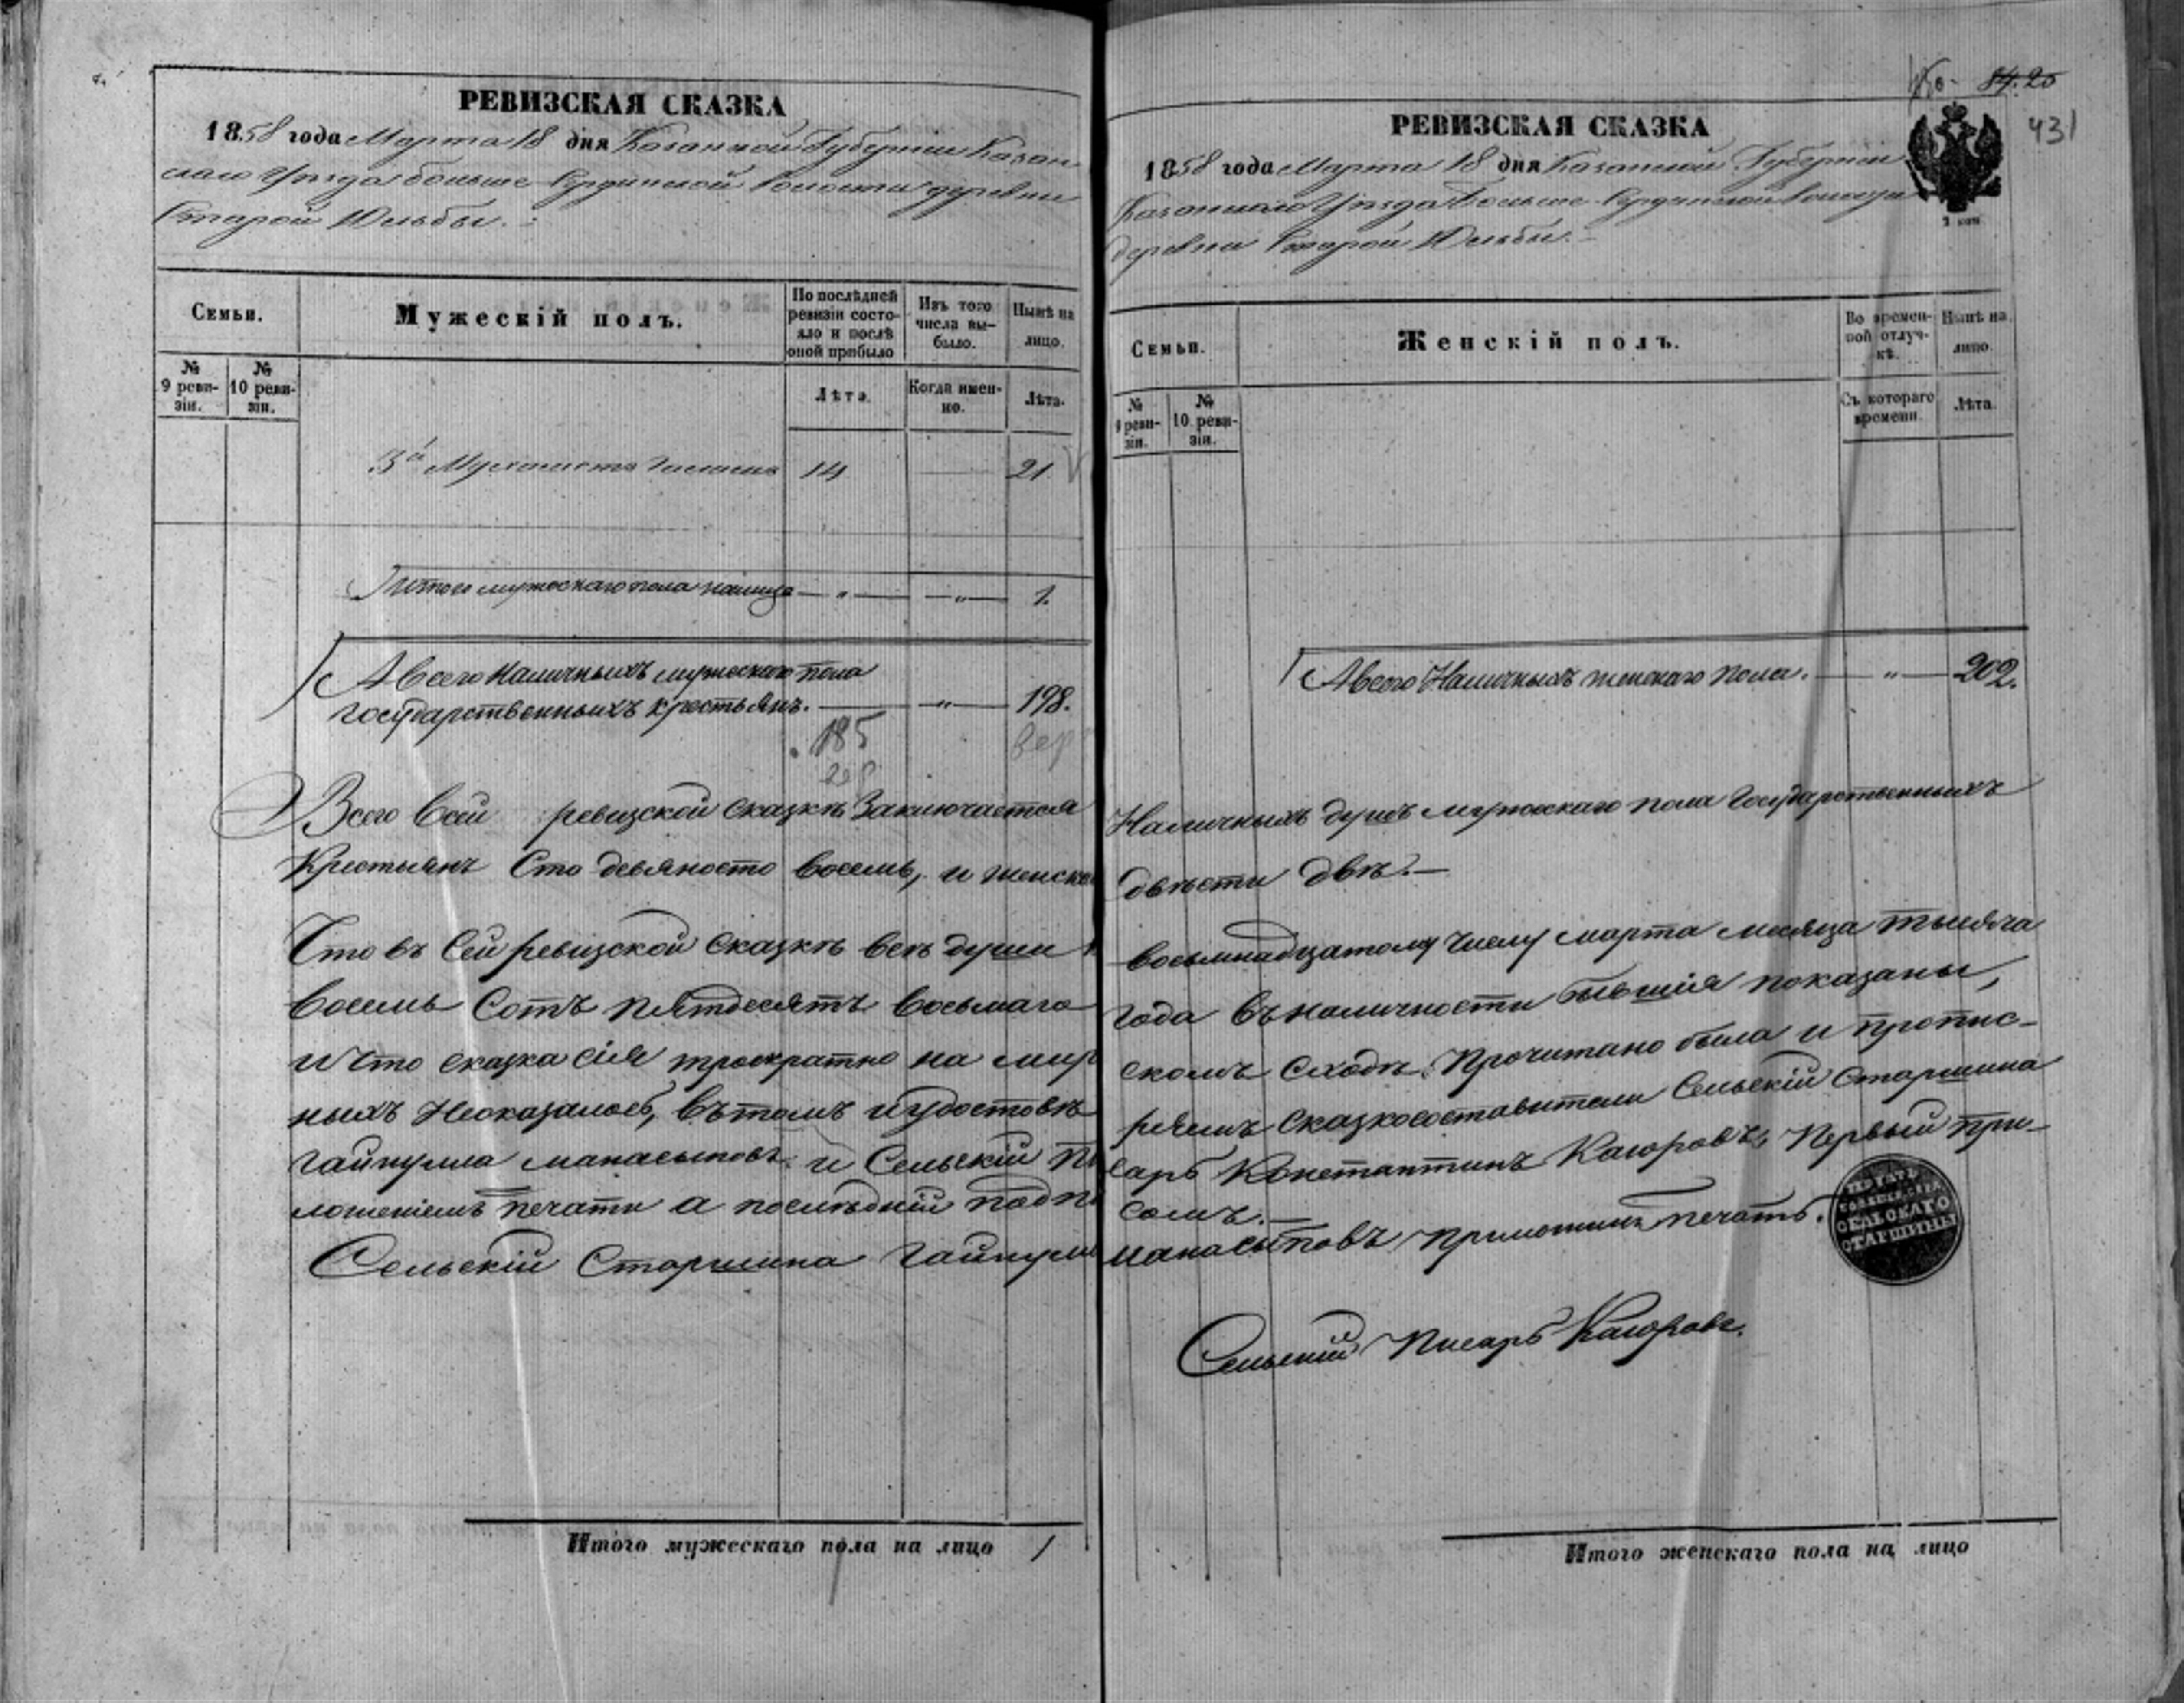 РЕВИЗСКАЯ СКАЗКА
1858 года Марта 18 дня Казанской Губернии Казан
скаго Уѣзда Больше-Сердинской Волости деревни
Старой Юльбы.
Семьи.
Мужескій полъ.
По послѣдней ревизіи состояло и послѣ оной прибыло
Изъ того числа выбыло.
Нынѣ на лицо.
№ 9 ревизіи.
№ 10 ревизіи.
Лѣта.
Когда именно.
Лѣта.
3й 14 — 21.
Итого мужескаго пола налицо — „ — — „ — 1.
А всего Наличныхъ мужескаго пола
государственныхъ крестьянъ. — „ — 198.
185
Всего в сей ревизской сказкѣ Заключается
Крестьянъ Сто девяносто восемь, и женска
Что въ Сей ревизской Сказкѣ всѣ души
восемь Сотъ пятдесятъ восьмаго
и что сказка сія троекратно на мир
ныхъ Неоказалось, въ томъ и удостовѣ
Гайнулла манасыповъ и Сельскій п
ложеніемъ печати а послѣдній подп
Сельскій Старшина Гайнулл
Итого мужескаго пола на лицо 1
84. 20
431
РЕВИЗСКАЯ СКАЗКА
1858 года Марта 18 дня Казанской Губерніи
Казанскаго Уѣзда Больше-Сердинской Волости
деревни Старой Юльбы.
2 коп
Семьи.
Женскій полъ.
Во временной отлучкѣ.
Нынѣ на лицо.
№ 9 ревизіи.
№ 10 ревизіи.
Съ котораго времени.
Лѣта.
А всего Наличныхъ женскаго пола. — „ — 202.
Наличныхъ душъ мужескаго пола Государственныхъ
двѣсти двѣ.—
восьмнадцатому числу марта месяца тысяча
года въ наличности бывшія показаны,
скомъ сходѣ Прочитано была и пропис-
ряемъ Сказкосоставители Сельскій Старшина
сарь Константинъ Каюровъ, Первый при-
сомъ.—
манасыповъ приложилъ печать.
ПЕЧАТЬ
СЕЛЬСКАГО
СТАРШИНЫ
Сельскій Писарь Каюровъ.
Итого женскаго пола на лицо